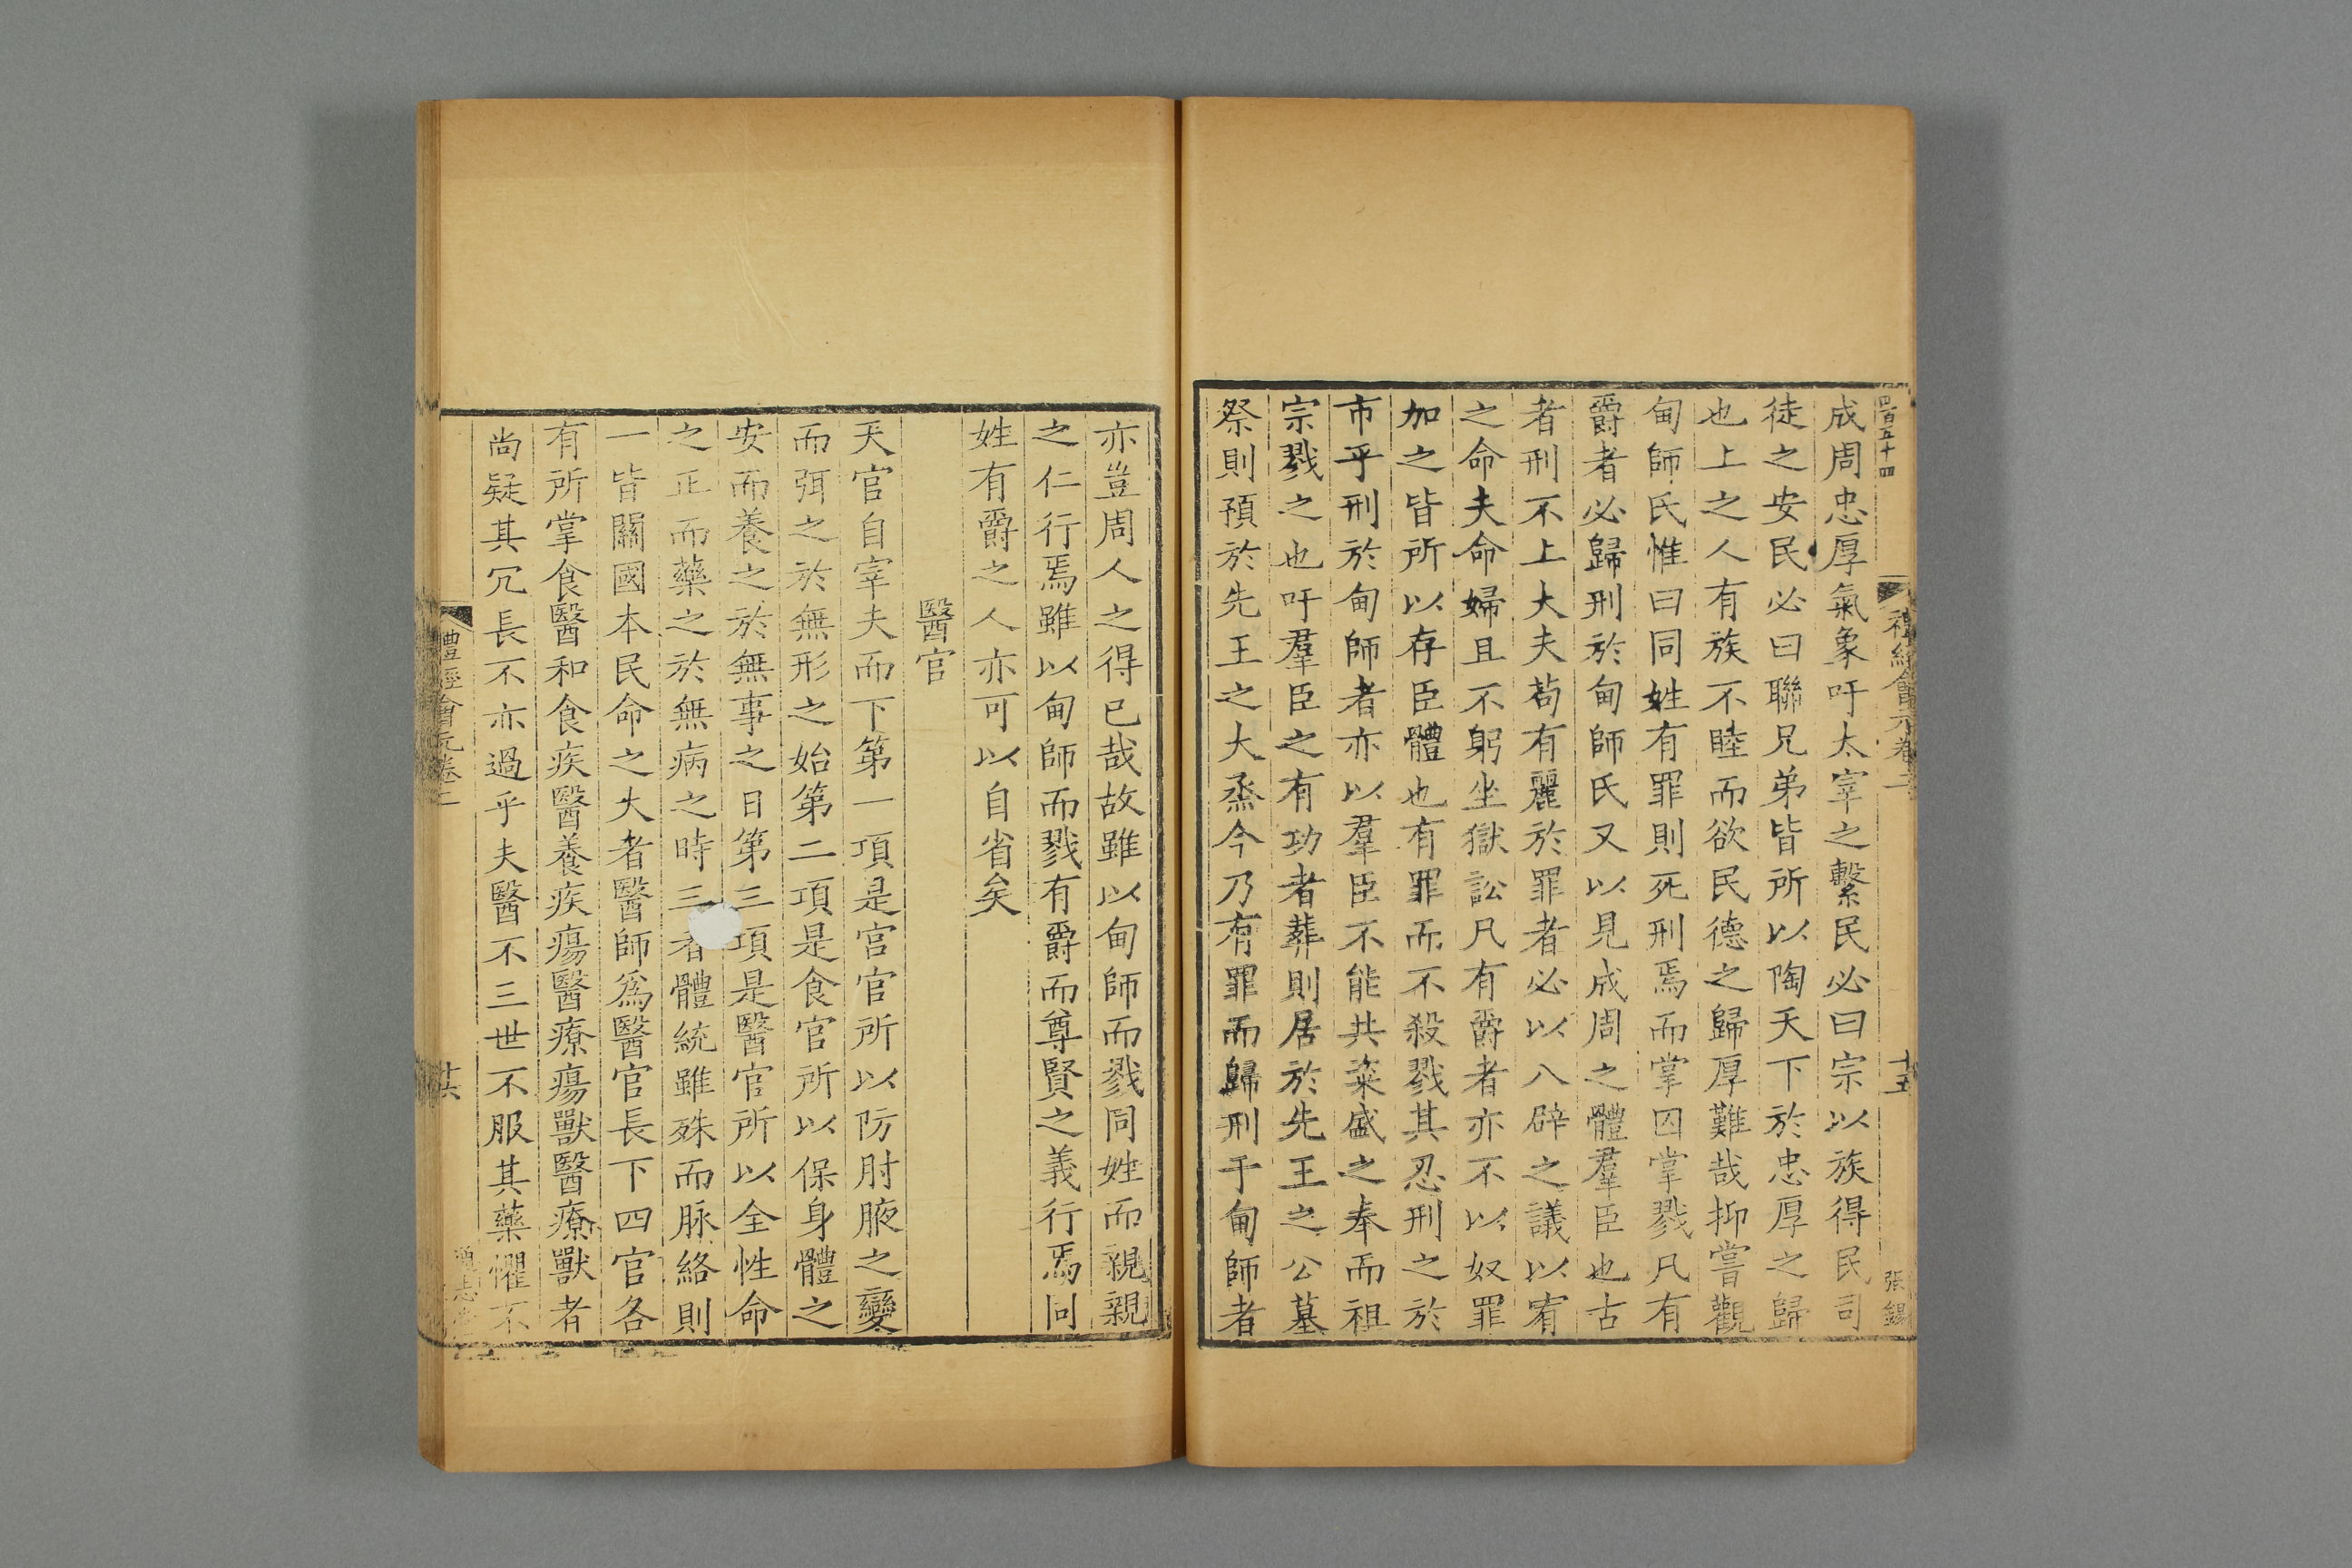 四百五十四
禮經會元卷二
十五
張錫
成周忠厚氣象吁太宰之繫民必曰宗以族得民司
徒之安民必曰聯兄弟皆所以陶天下於忠厚之歸
也上之人有族不睦而欲民德之歸厚難哉抑嘗觀
甸師氏惟曰同姓有罪則死刑焉而掌囚掌戮凡有
爵者必歸刑於甸師氏又以見成周之體羣臣也古
者刑不上大夫苟有麗於罪者必以八辟之議以宥
之命夫命婦且不躬坐獄訟凡有爵者亦不以奴罪
加之皆所以存臣體也有罪而不殺戮其忍刑之於
市乎刑於甸師者亦以羣臣不能共粢盛之奉而祖
宗戮之也吁羣臣之有功者葬則居於先王之公墓
祭則預於先王之大烝今乃有罪而歸刑于甸師者
亦豈周人之得已哉故雖以甸師而戮同姓而親親
之仁行焉雖以甸師而戮有爵而尊賢之義行焉同
姓有爵之人亦可以自省矣
醫官
天官自宰夫而下第一項是宮官所以防肘腋之變
而弭之於無形之始第二項是食官所以保身體之
安而養之於無事之日第三項是醫官所以全性命
之正而藥之於無病之時三者體統雖殊而脉絡則
一皆關國本民命之大者醫師爲醫官長下四官各
有所掌食醫和食疾醫養疾瘍醫療瘍獸醫療獸者
尚疑其冗長不亦過乎夫醫不三世不服其藥懼不
禮經會元卷二
十六